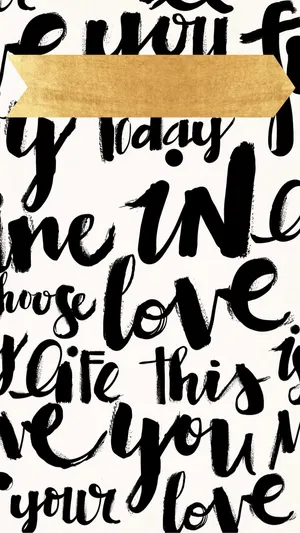 you
Today
ine IN
hoose love
life this is
ve you
your love